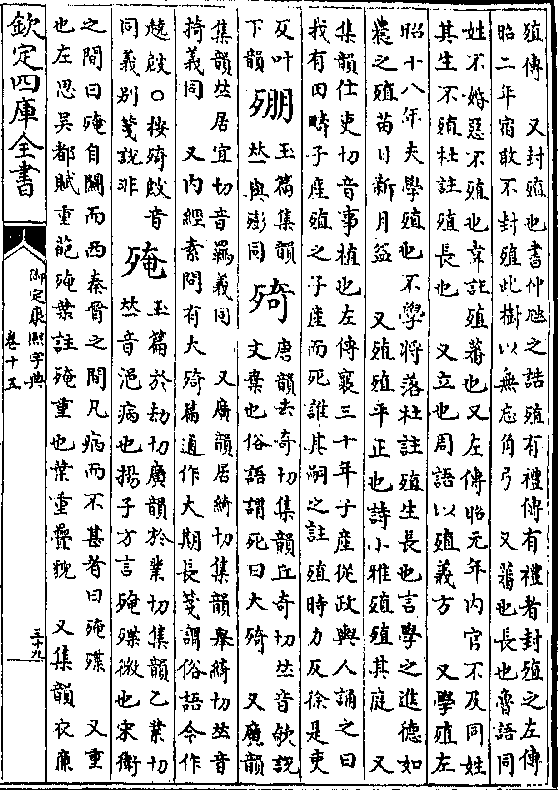 殖傳　又封殖也書仲虺之誥殖有禮傳有禮者封殖之左傳
昭二年宿敢不封殖此樹以無忘角弓　又蕃也長也魯語同
姓不婚惡不殖也韋註殖蕃也又左傳昭元年內官不及同姓
其生不殖杜註殖長也　又立也周語以殖義方　又學殖左
昭十八年夫學殖也不學將落杜註殖生長也言學之進德如
農之殖苗日新月益　又殖殖平正也詩小雅殖殖其庭　又
集韻仕吏切音事植也左傳襄三十年子產從政輿人誦之曰
我有田疇子產殖之子產而死誰其嗣之註殖時力反徐是吏
反叶
下韻
㱶
玉篇集韻
𠀤與同
㱦
唐韻去奇切集韻丘奇切𠀤音欹說
文棄也俗語謂死曰大㱦　又廣韻
集韻𠀤居宜切音羈義同　又廣韻居綺切集韻舉綺切𠀤音
掎義同　又內經素問有大㱦篇通作大期長箋謂俗語今作
○按㱦音
同義別箋說非
殗
玉篇於劫切廣韻於業切集韻乙業切
𠀤音浥病也揚子方言殗殜微也宋衛
之間曰殗自關而西秦晉之間凡病而不甚者曰殗殜　又重
也左思吳都賦重葩殗葉註殗重也葉重疊貌　又集韻衣廉
欽定四庫全書
御定康熙字典
卷十五
三十九